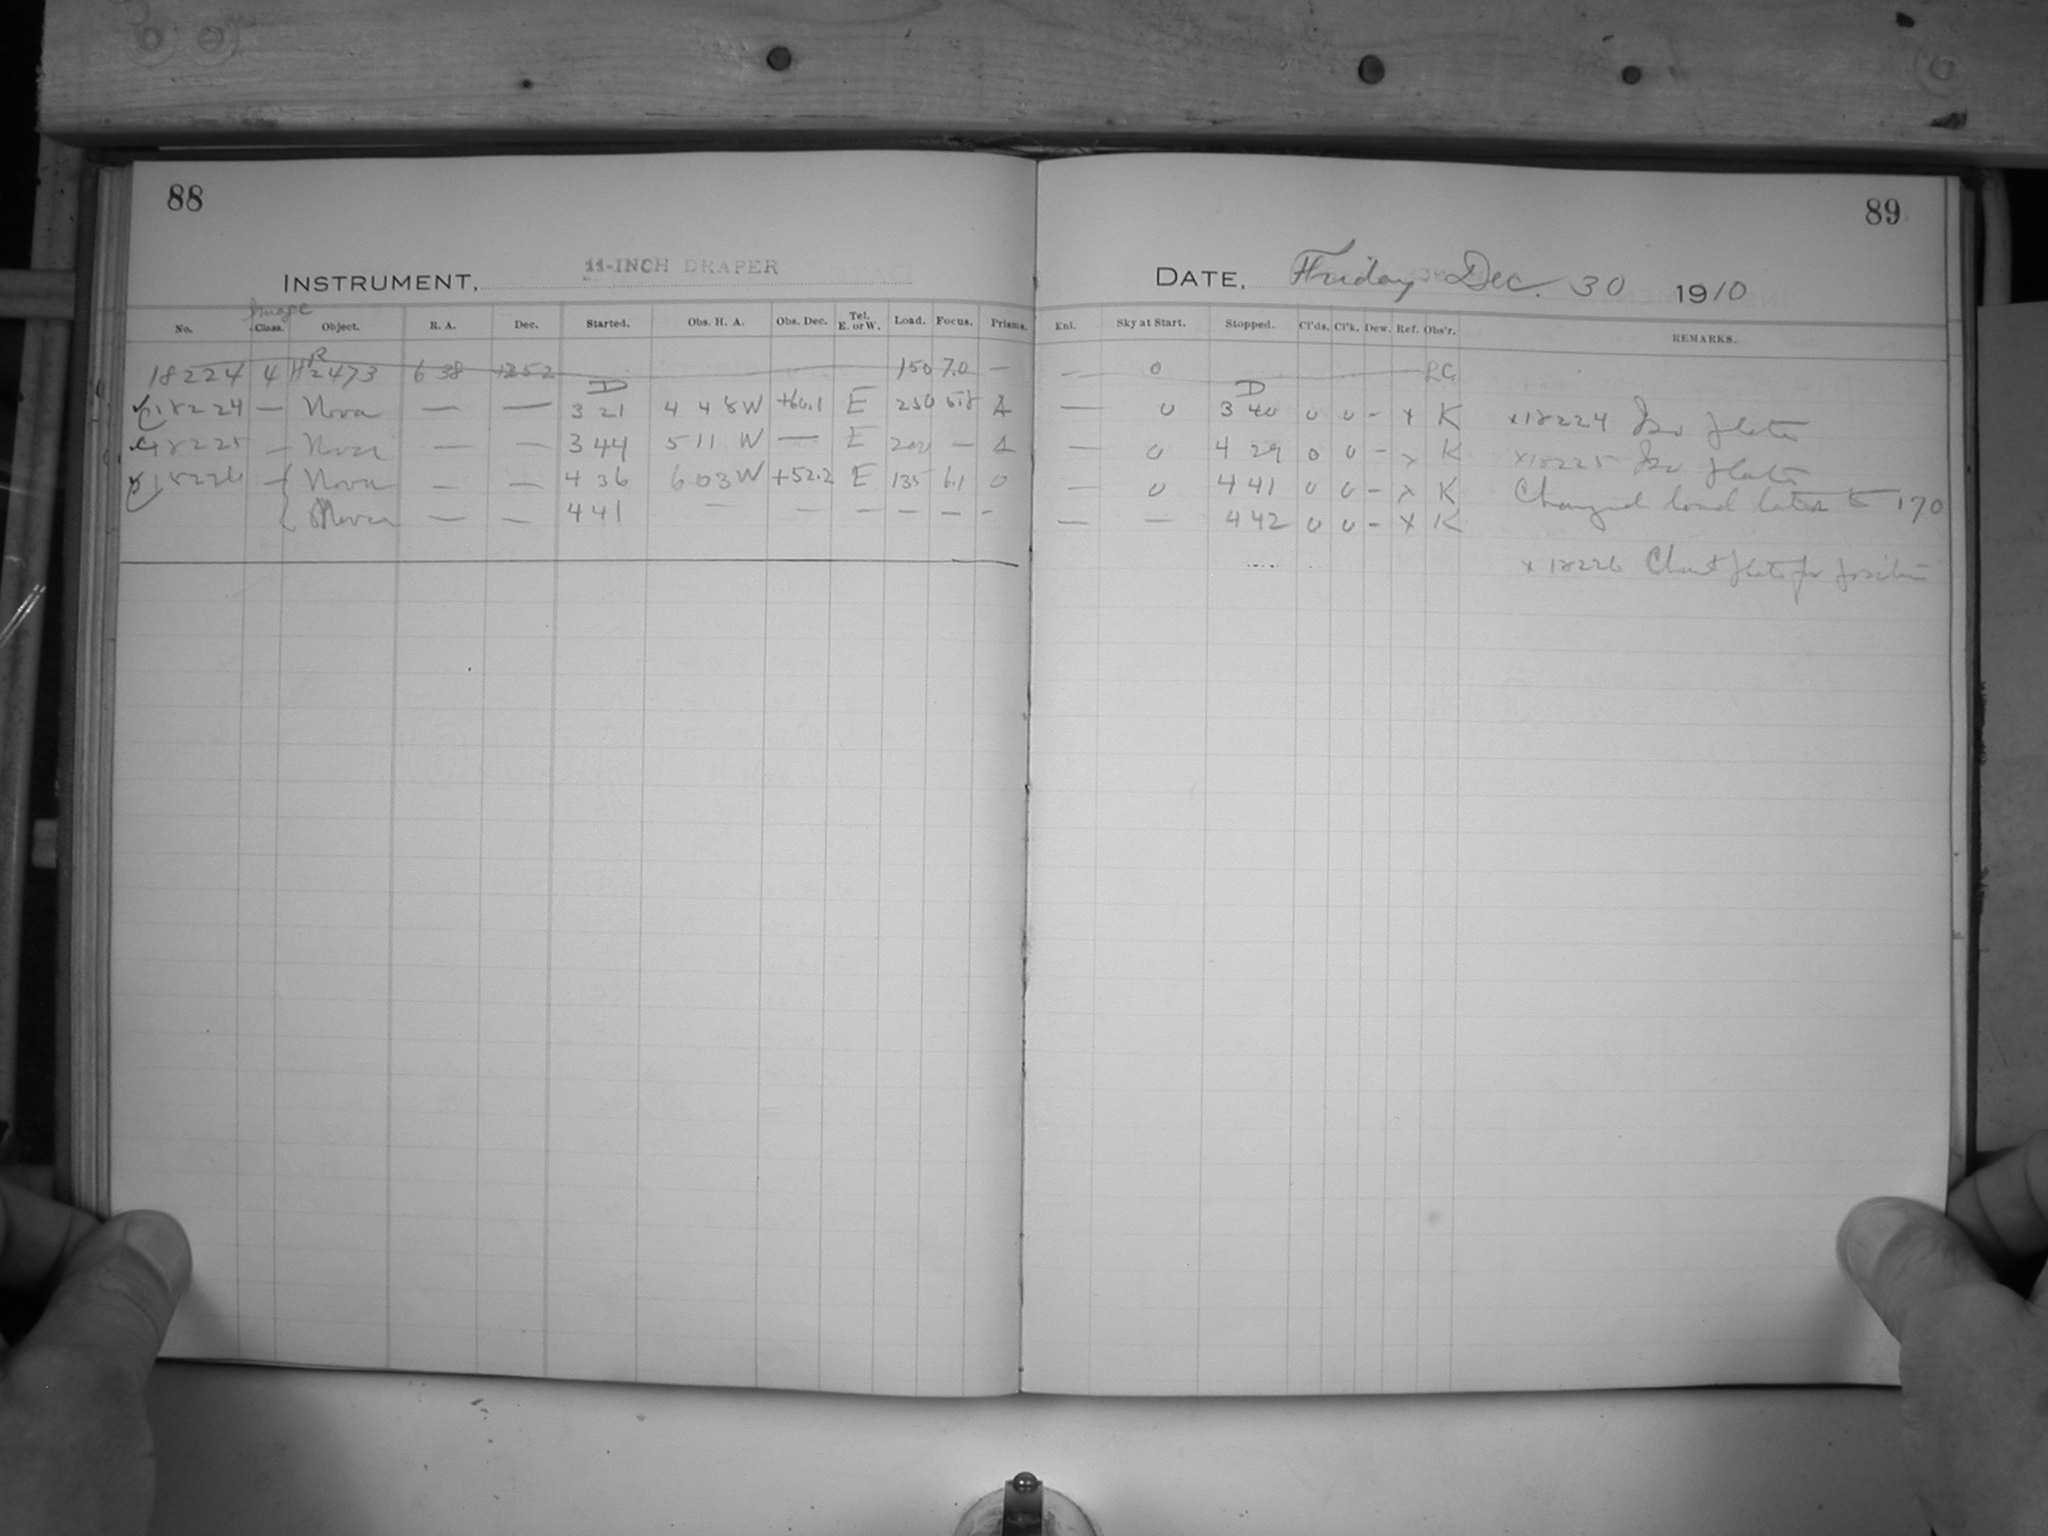 88
89
INSTRUMENT, 11-INCH DRAPER
DATE, Friday Dec. 30 1910
Image
No. Class. Object. R. A. Dec. Started. Obs. H. A. Obs. Dec. Tel. E. or W. Load. Focus. Prisms. Enl. Sky at Start. Stopped. Cl'ds. Cl'k. Dew. Ref. Obs'r. REMARKS.
18224 4 HR 2473 6 38 1352 150 7.0 — — 0
D D
18224 — Nova — — 3 21 4 48 W +60.1 E 250 5.8 A — 0 3 40 0 0 - x K x18224 Iso plate
18225 — Nova — — 3 44 5 11 W — E — A — 0 4 29 0 0 - x K x18225 Iso plate
18226 — Nova — — 4 36 6 03 W +52.2 E 135 6.1 0 — 0 4 41 0 0 - x K Changed load later to 170
Nova — — 4 41 — — — — — - — — 4 42 0 0 - x K
x 18226 Chart plate for position